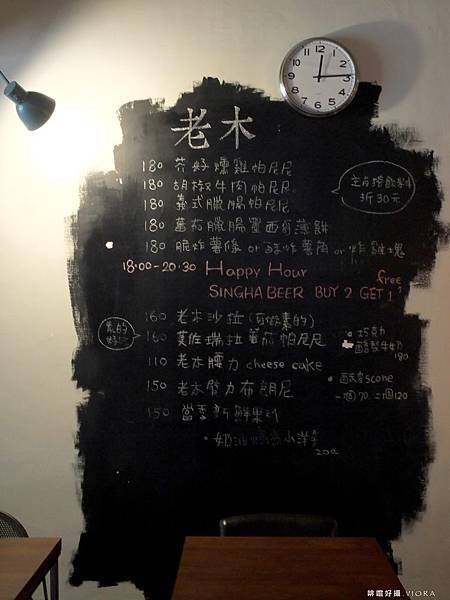 老木
180 芥籽燻雞帕尼尼
180 胡椒牛肉帕尼尼
180 義式臘腸帕尼尼
180 蕃茄臘腸墨西哥薄餅
180 脆炸薯條 or 酥炸薯角 or 炸雞塊
主食搭飲料
折30元
18:00-20:30 Happy Hour
SINGHA BEER BUY 2 GET 1 free
160 老木沙拉(可做素的)
素的
160 莫佐瑞拉蕃茄帕尼尼
110 老木腰力 cheese cake
150 老木臂力布朗尼
150 當季新鮮果汁
• 奶油 小洋芋
200
• 巧克力
牛奶
180
• scone
一個70 二個120
啡嚐好攝.VIORA